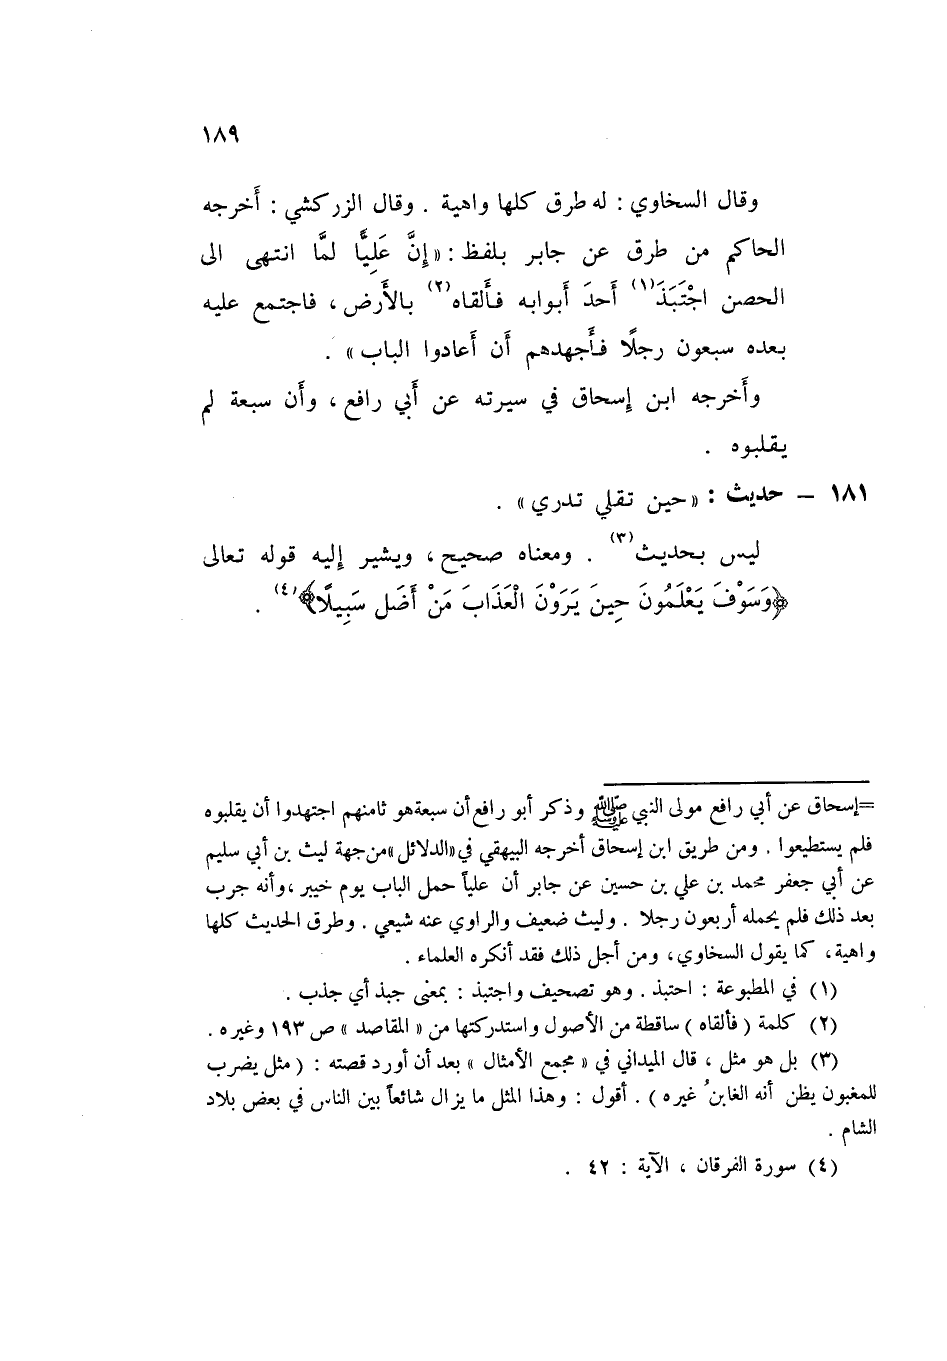 ١٨٩
وقال السخاوي : له طرق كلها واهية . وقال الزركشي : أَخرجه
الحاكم من طرق عن جابر بلفظ : « إِنَّ عَلِيًّا لمَّا انتهى الى
الحصن اجْتَبَذَ(١) أَحدَ أَبوابه فأَلقاه(٢) بالأَرض ، فاجتمع عليه
بعده سبعون رجلًا فأَجهدهم أَن أَعادوا الباب » .
وأَخرجه ابن إِسحاق في سيرته عن أَبي رافع ، وأَن سبعة لم
يقلبوه .
١٨١ – حديث : « حين تقلي تدري » .
ليس بحديث(٣) . ومعناه صحيح ، ويشير إِليه قوله تعالى
﴿وَسَوْفَ يَعْلَمُونَ حِينَ يَرَوْنَ الْعَذَابَ مَنْ أَضَل سَبِيلًا﴾(٤) .
=إسحاق عن أبي رافع مولى النبي ﷺ وذكر أبو رافع أن سبعة هو ثامنهم اجتهدوا أن يقلبوه
فلم يستطيعوا . ومن طريق ابن إسحاق أخرجه البيهقي في «الدلائل» من جهة ليث بن أبي سليم
عن أبي جعفر محمد بن علي بن حسين عن جابر أن علياً حمل الباب يوم خيبر ، وأنه جرب
بعد ذلك فلم يحمله أربعون رجلا . وليث ضعيف والراوي عنه شيعي . وطرق الحديث كلها
واهية ، كما يقول السخاوي ، ومن أجل ذلك فقد أنكره العلماء .
(١) في المطبوعة : احتبذ . وهو تصحيف واجتبذ : بمعنى جبذ أي جذب .
(٢) كلمة ( فألقاه ) ساقطة من الأصول واستدركتها من « المقاصد » ص ١٩٣ وغيره .
(٣) بل هو مثل ، قال الميداني في « مجمع الأمثال » بعد أن أورد قصته : ( مثل يضرب
للمغبون يظن أنه الغابنُ غيره ) . أقول : وهذا المثل ما يزال شائعاً بين الناس في بعض بلاد
الشام .
(٤) سورة الفرقان ، الآية : ٤٢ .